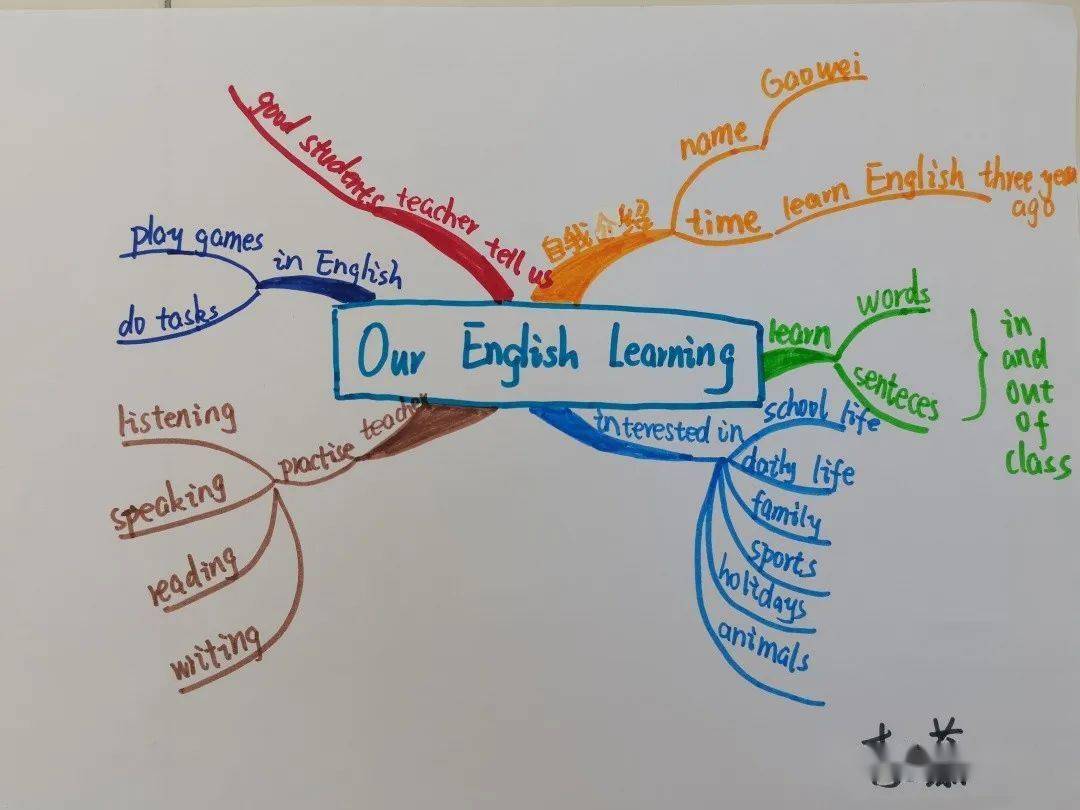 Our English Learning
自我介绍
name
Gaowei
time
learn English three years
ago
learn
words
senteces
in
and
out
of
class
interested in
school life
daily life
family
sports
holidays
animals
practise teacher
listening
speaking
reading
writing
in English
play games
do tasks
good students teacher tell us